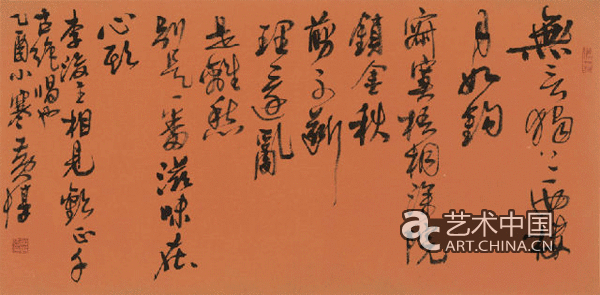 無言獨上西樓
月如鈎
寂寞梧桐深院
鎖金秋
剪不斷
理還亂
是離愁
別是一番滋味在
心頭
李後主相見歡正千
古絕唱也
乙酉小寒
艺术中国
ART.CHINA.CN